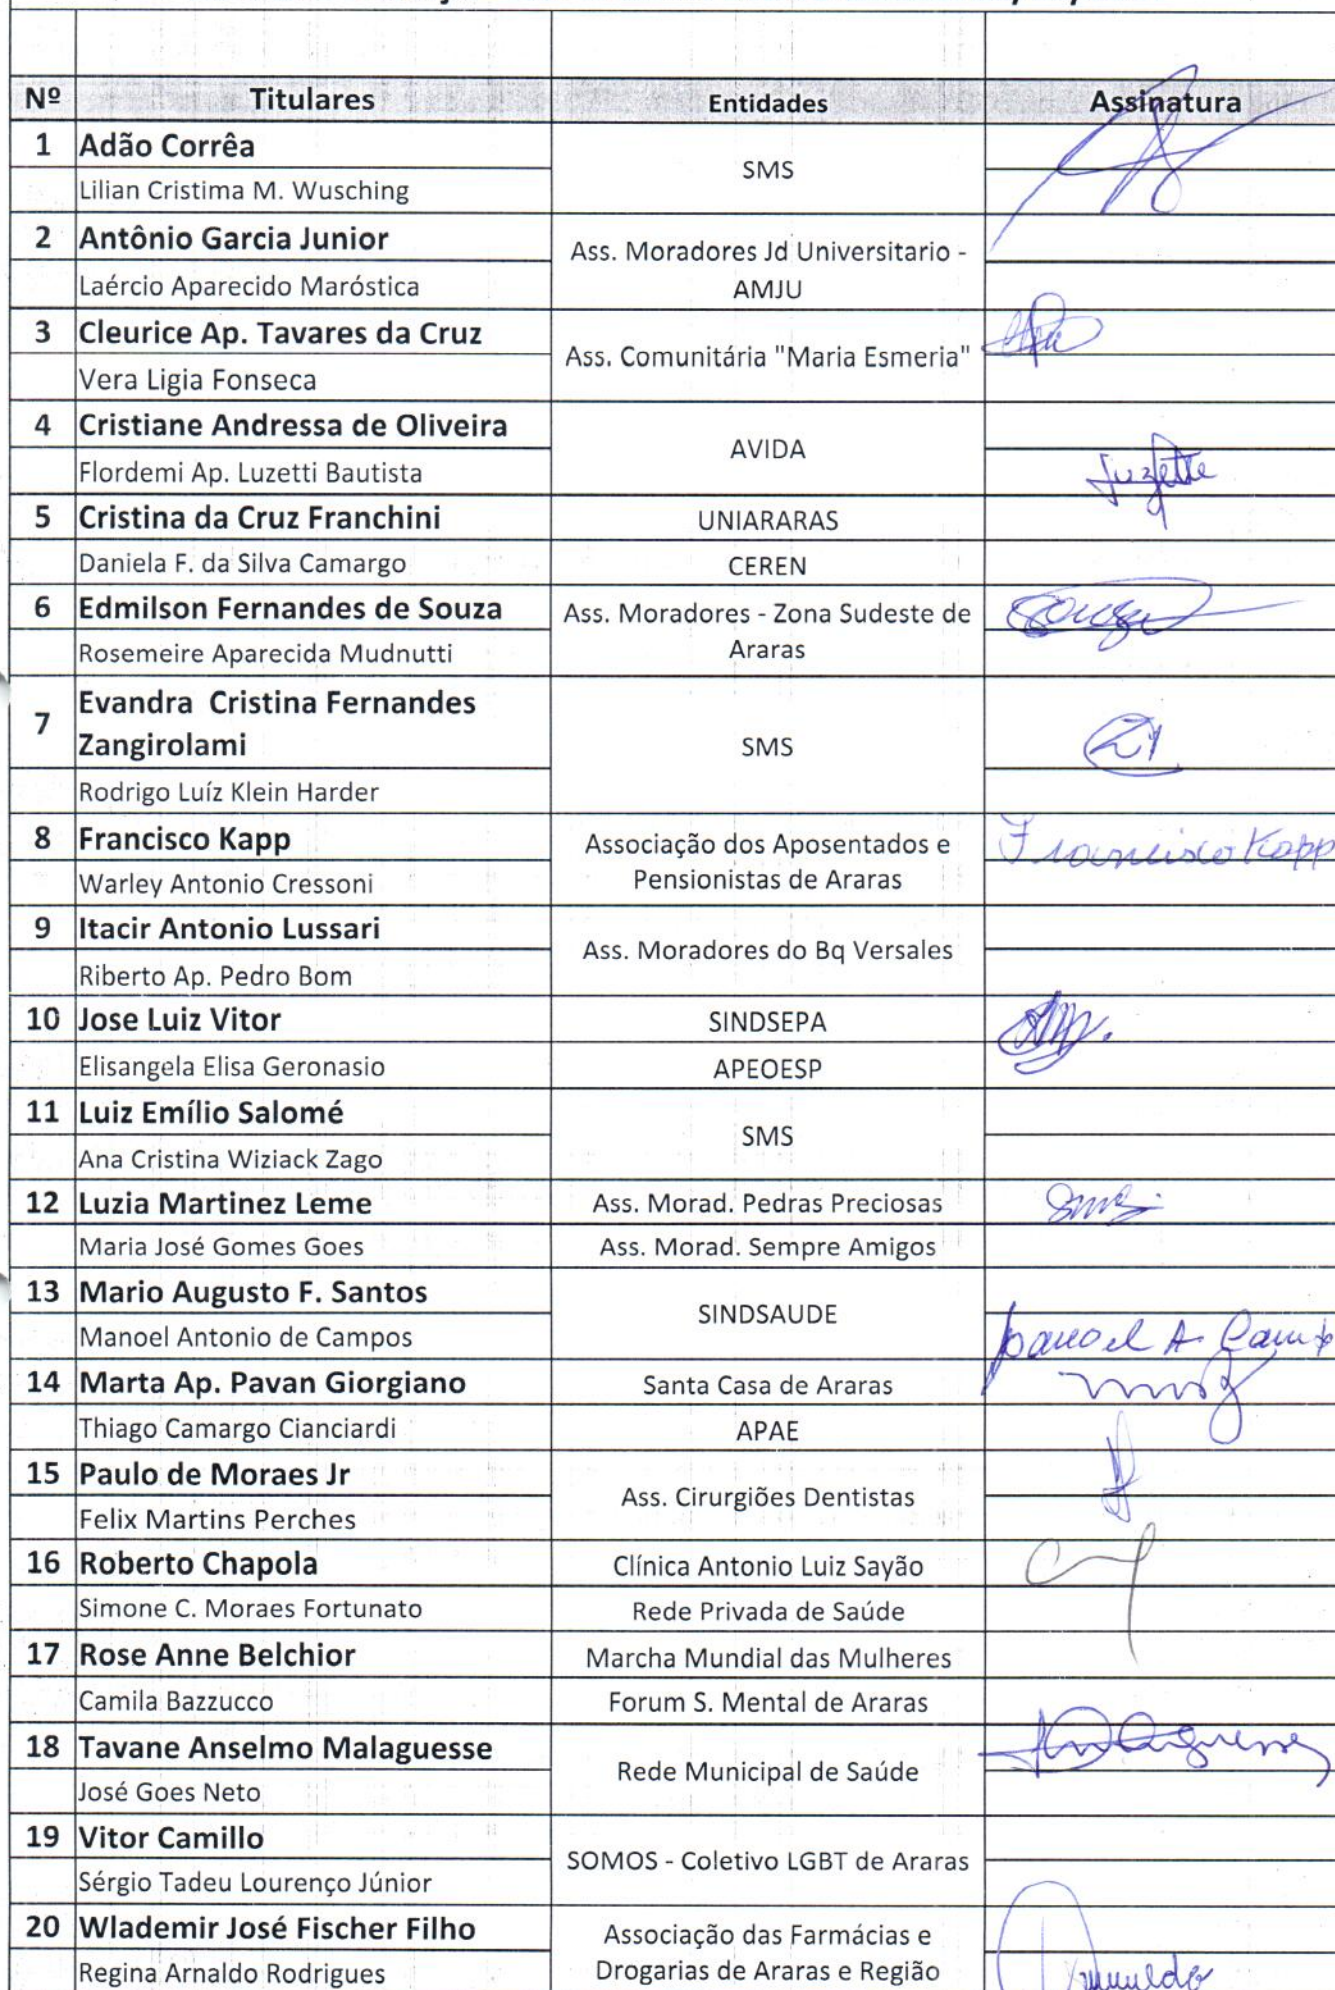 Nº Titulares Entidades Assinatura
1 Adão Corrêa
SMS
Lilian Cristima M. Wusching
2 Antônio Garcia Junior
Ass. Moradores Jd Universitario -
Laércio Aparecido Maróstica
AMJU
3 Cleurice Ap. Tavares da Cruz
Ass. Comunitária "Maria Esmeria"
Vera Ligia Fonseca
4 Cristiane Andressa de Oliveira
AVIDA
Flordemi Ap. Luzetti Bautista
5 Cristina da Cruz Franchini UNIARARAS
Daniela F. da Silva Camargo CEREN
6 Edmilson Fernandes de Souza
Ass. Moradores - Zona Sudeste de
Rosemeire Aparecida Mudnutti
Araras
7 Evandra Cristina Fernandes
Zangirolami
SMS
Rodrigo Luíz Klein Harder
8 Francisco Kapp
Associação dos Aposentados e
Francisco Kapp
Warley Antonio Cressoni
Pensionistas de Araras
9 Itacir Antonio Lussari
Ass. Moradores do Bq Versales
Riberto Ap. Pedro Bom
10 Jose Luiz Vitor SINDSEPA
Elisangela Elisa Geronasio APEOESP
11 Luiz Emílio Salomé
SMS
Ana Cristina Wiziack Zago
12 Luzia Martinez Leme Ass. Morad. Pedras Preciosas
Maria José Gomes Goes Ass. Morad. Sempre Amigos
13 Mario Augusto F. Santos
SINDSAUDE
Manoel Antonio de Campos
14 Marta Ap. Pavan Giorgiano Santa Casa de Araras
Thiago Camargo Cianciardi APAE
15 Paulo de Moraes Jr
Ass. Cirurgiões Dentistas
Felix Martins Perches
16 Roberto Chapola Clínica Antonio Luiz Sayão
Simone C. Moraes Fortunato Rede Privada de Saúde
17 Rose Anne Belchior Marcha Mundial das Mulheres
Camila Bazzucco Forum S. Mental de Araras
18 Tavane Anselmo Malaguesse
Rede Municipal de Saúde
José Goes Neto
19 Vitor Camillo
SOMOS - Coletivo LGBT de Araras
Sérgio Tadeu Lourenço Júnior
20 Wlademir José Fischer Filho
Associação das Farmácias e
Regina Arnaldo Rodrigues
Drogarias de Araras e Região